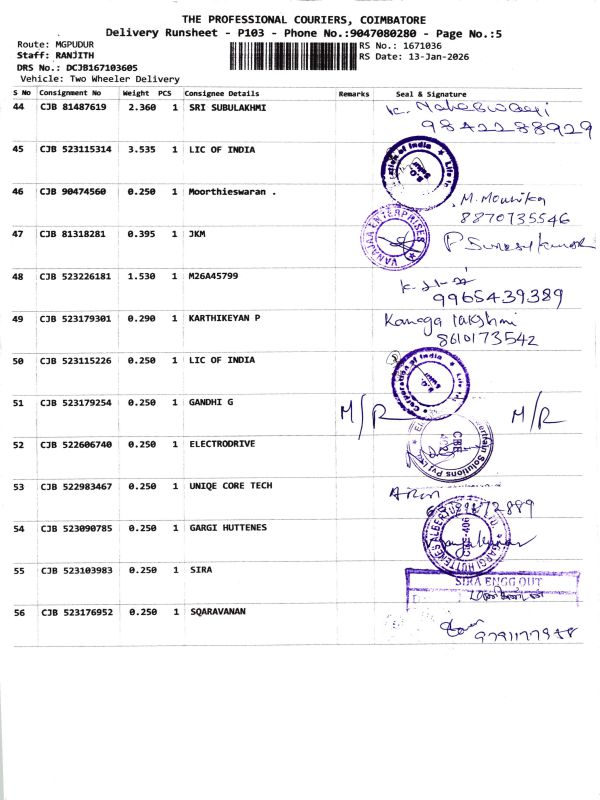 THE PROFESSIONAL COURIERS, COIMBATORE
Delivery Runsheet - P103 - Phone No.:9047080280 - Page No.:5
Route: MGPUDUR RS No.: 1671036
Staff: RANJITH RS Date: 13-Jan-2026
DRS No.: DCJB167103605
Vehicle: Two Wheeler Delivery
S No Consignment No Weight PCS Consignee Details Remarks Seal & Signature
44 CJB 81487619 2.360 1 SRI SUBULAKHMI
9842288929
45 CJB 523115314 3.535 1 LIC OF INDIA
46 CJB 90474560 0.250 1 Moorthieswaran . M. Mounika
8870735546
47 CJB 81318281 0.395 1 JKM VANAJAA ENTERPRISES
48 CJB 523226181 1.530 1 M26A45799
9965439389
49 CJB 523179301 0.290 1 KARTHIKEYAN P Kanaga lakshmi
8610173542
50 CJB 523115226 0.250 1 LIC OF INDIA Corporation of India
51 CJB 523179254 0.250 1 GANDHI G M/R M/R
52 CJB 522606740 0.250 1 ELECTRODRIVE CBE
53 CJB 522983467 0.250 1 UNIQE CORE TECH Arun
54 CJB 523090785 0.250 1 GARGI HUTTENES
55 CJB 523103983 0.250 1 SIRA SIRA ENGG OUT
56 CJB 523176952 0.250 1 SQARAVANAN